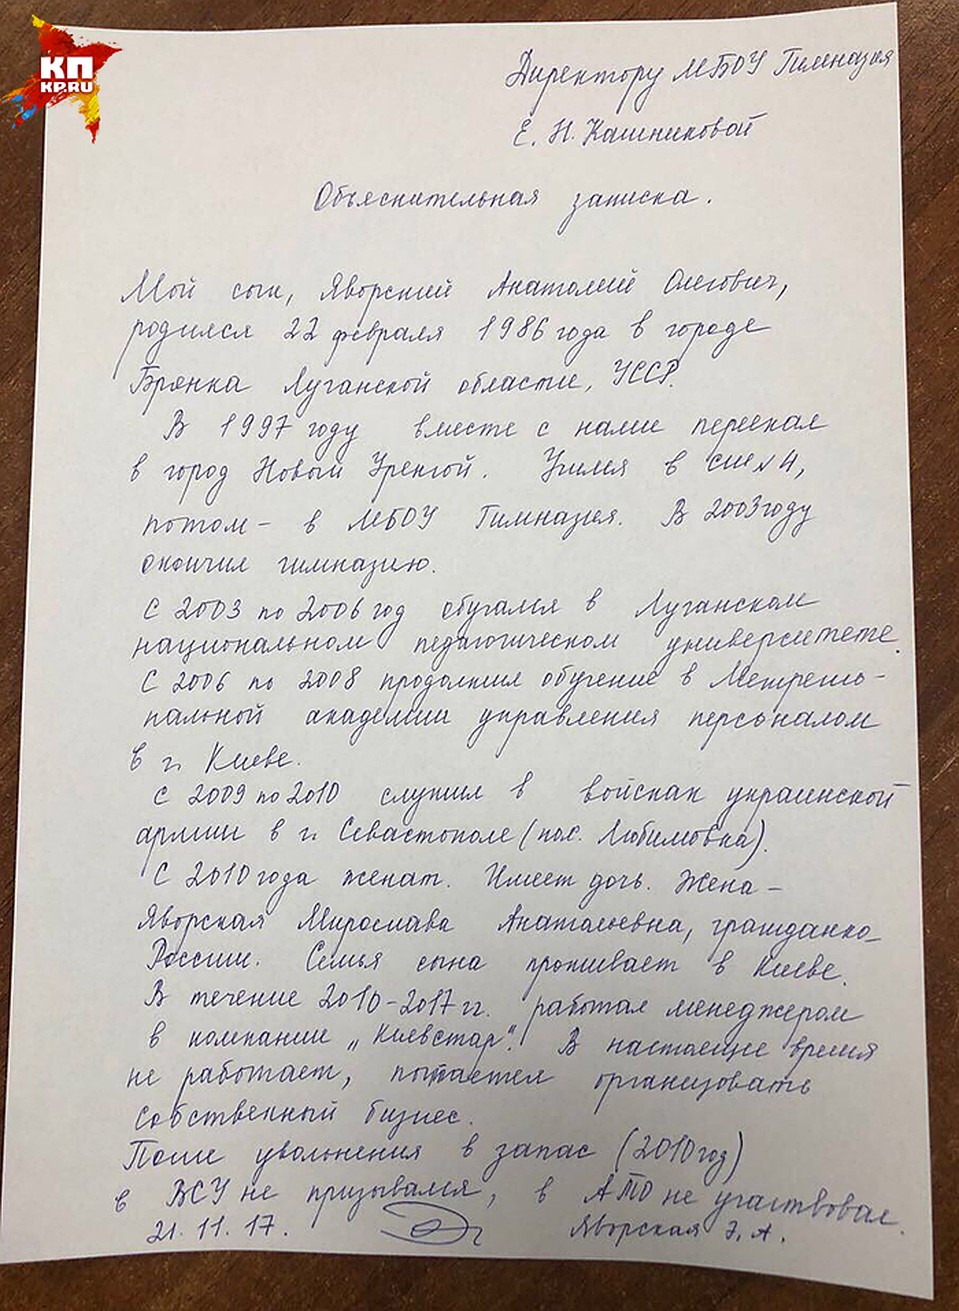 КП
KP.RU
Директору МБОУ Гимназия
Е. Н. Кашниковой
Объяснительная записка.
Мой сын, Яворский Анатолий Олегович,
родился 22 февраля 1986 года в городе
Брянка Луганской области, УССР.
В 1997 году вместе с нами переехал
в город Новый Уренгой. Учился в СШ №4,
потом - в МБОУ Гимназия. В 2003 году
окончил гимназию.
С 2003 по 2006 год обучался в Луганском
национальном педагогическом университете.
С 2006 по 2008 продолжил обучение в Межрегио-
нальной академии управления персоналом
в г. Киеве.
С 2009 по 2010 служил в войсках украинской
армии в г. Севастополе (пос. Любимовка).
С 2010 года женат. Имеет дочь. Жена -
Яворская Мирослава Анатольевна, гражданка
России. Семья сына проживает в Киеве.
В течение 2010-2017 гг. работал менеджером
в компании „Киевстар". В настоящее время
не работает, пытается организовать
собственный бизнес.
После увольнения в запас (2010 год)
в ВСУ не призывался, в АТО не участвовал.
21.11.17. Яворская Э. А.